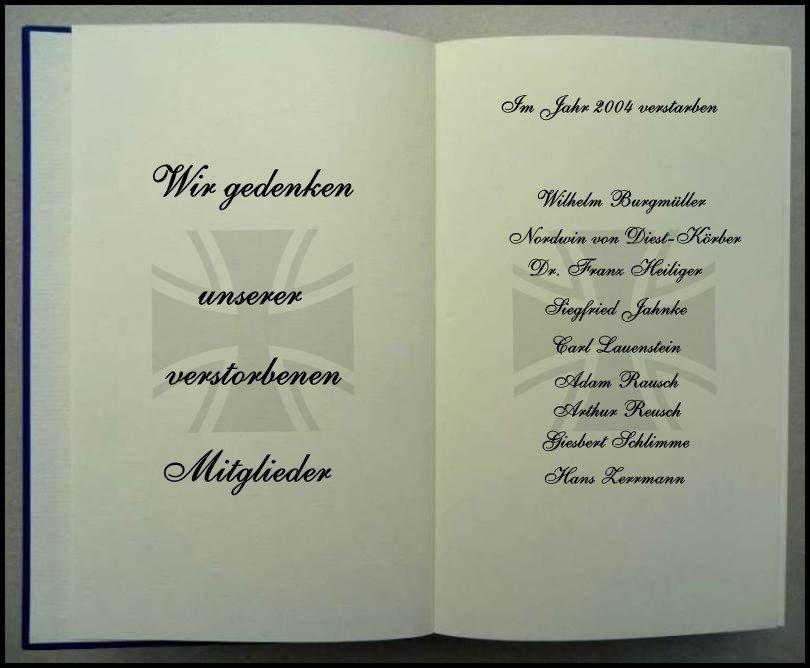 Wir gedenken
unserer
verstorbenen
Mitglieder
Im Jahr 2004 verstarben
Wilhelm Burgmüller
Nordwin von Diest-Körber
Dr. Franz Heiliger
Siegfried Jahnke
Carl Lauenstein
Adam Rausch
Arthur Reusch
Giesbert Schlimme
Hans Zerrmann